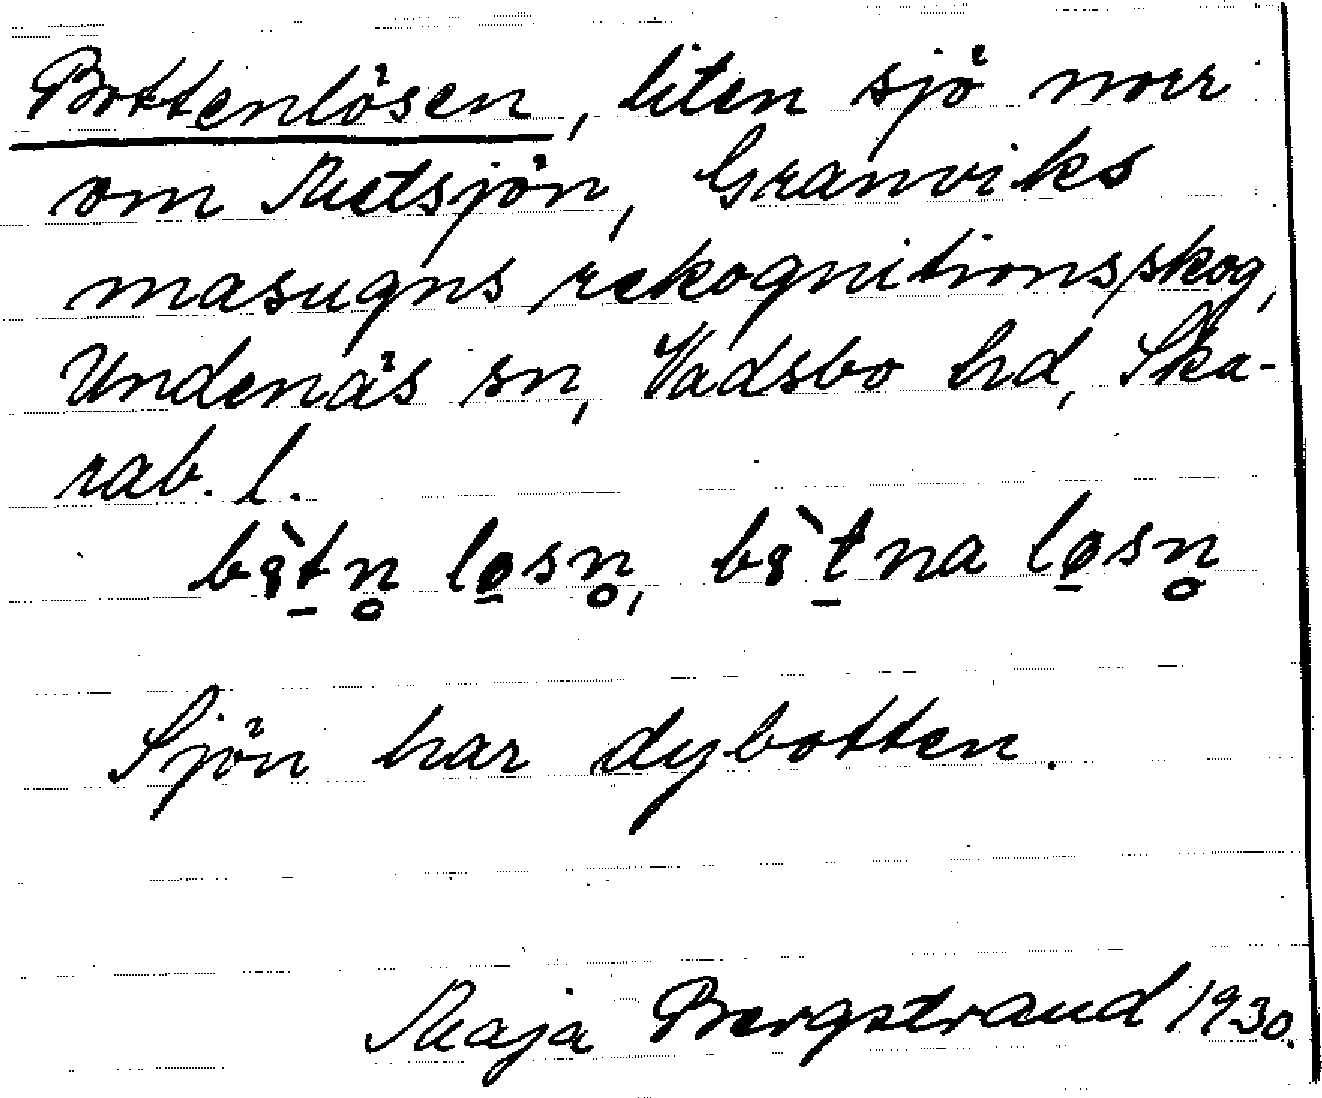 Bottenlösen, liten sjö norr
om Metsjön, Granviks
masugns rekognitionsskog,
Undenäs sn, Vadsbo hd, Ska-
rab. l.
Sjön har dybotten.
Maja Bergstrand 1930.